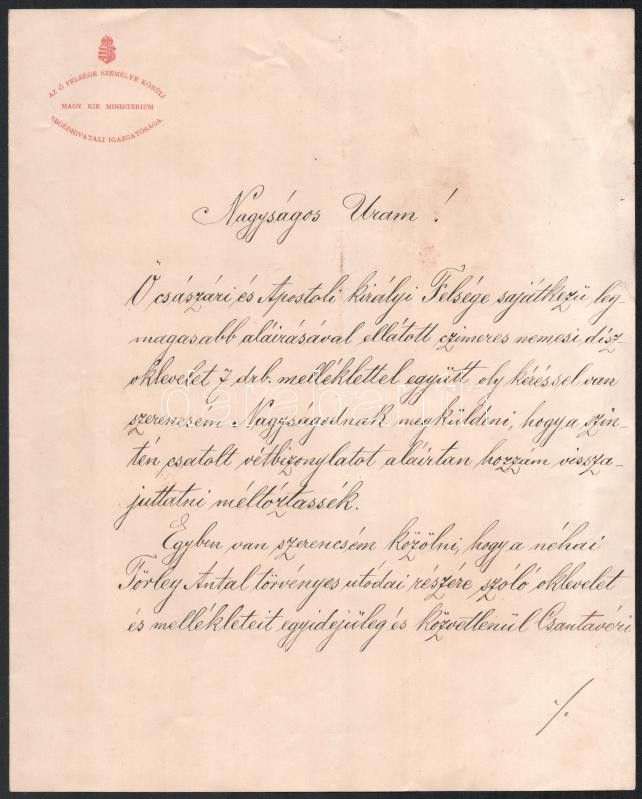 AZ Ő FELSÉGE SZEMÉLYE KÖRÜLI
MAGY. KIR. MINISTERIUM
SEGÉDHIVATALI IGAZGATÓSÁGA.
Nagyságos Uram!
Ő császári és Apostoli királyi Felsége sajátkezü leg-
magasabb aláirásával ellátott czimeres nemesi disz-
oklevelet 7 drb. melléklettel együtt oly kéréssel van
szerencsém Nagyságodnak megküldeni, hogy a szin-
tén csatolt vétbizonylatot aláirtan hozzám vissza-
juttatni méltóztassék.
Egyben van szerencsém közölni, hogy a néhai
Törley Antal törvényes utódai részére szóló oklevelet
és mellékleteit egyidejüleg és közvetlenül Csantavéri
./.
darabanth